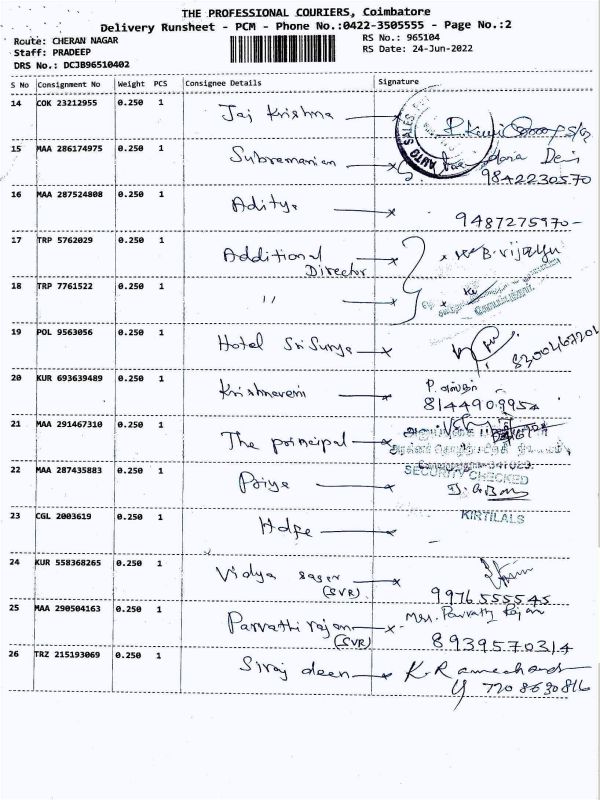 THE PROFESSIONAL COURIERS, Coimbatore
Delivery Runsheet - PCM - Phone No.:0422-3505555 - Page No.:2
Route: CHERAN NAGAR
Staff: PRADEEP
DRS No.: DCJB96510402
RS No.: 965104
RS Date: 24-Jun-2022
S No Consignment No Weight PCS Consignee Details Signature
14 COK 23212955 0.250 1 Jai Krishna
AUTO SALES
15 MAA 286174975 0.250 1 Subramanian
9842230570
16 MAA 287524808 0.250 1 Aditya
9487275970
17 TRP 5762029 0.250 1 Additional Director B. Vijaya
18 TRP 7761522 0.250 1 "
19 POL 9563056 0.250 1 Hotel Sri Surya
8300467204
20 KUR 693639489 0.250 1 Krishnaveni
21 MAA 291467310 0.250 1 The principal
22 MAA 287435883 0.250 1 Priya
SECURITY CHECKED
KIRTILALS
23 CGL 2003619 0.250 1 Hdfc
24 KUR 558368265 0.250 1 Vidya sager (SVR)
9976555545
25 MAA 290504163 0.250 1 Parvathi rajan (SVR) Mrs. Parvathy Rajan
8939570314
26 TRZ 215193069 0.250 1 Siraj deen K. Ramachand
7708630816